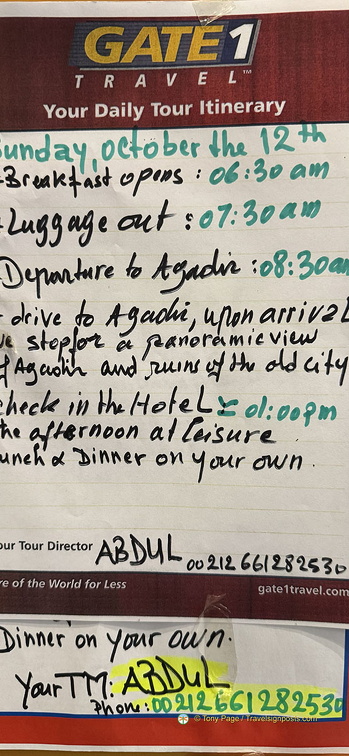 GATE 1
TRAVEL™
Your Daily Tour Itinerary
Sunday, october the 12th
-Breakfast opens : 06:30 am
-Luggage out : 07:30 am
-Departure to Agadir : 08:30am
- drive to Agadir, upon arrival
we stop for a panoramic view
of Agadir and ruins of the old city
check in the Hotel 01:00pm
the afternoon at leisure
unch & Dinner on your own.
our Tour Director ABDUL 00212661282530
re of the World for Less gate1travel.com
Dinner on your own.
Your TM: ABDUL
Phone: 00212661282530
© Tony Page / Travelsignposts.com